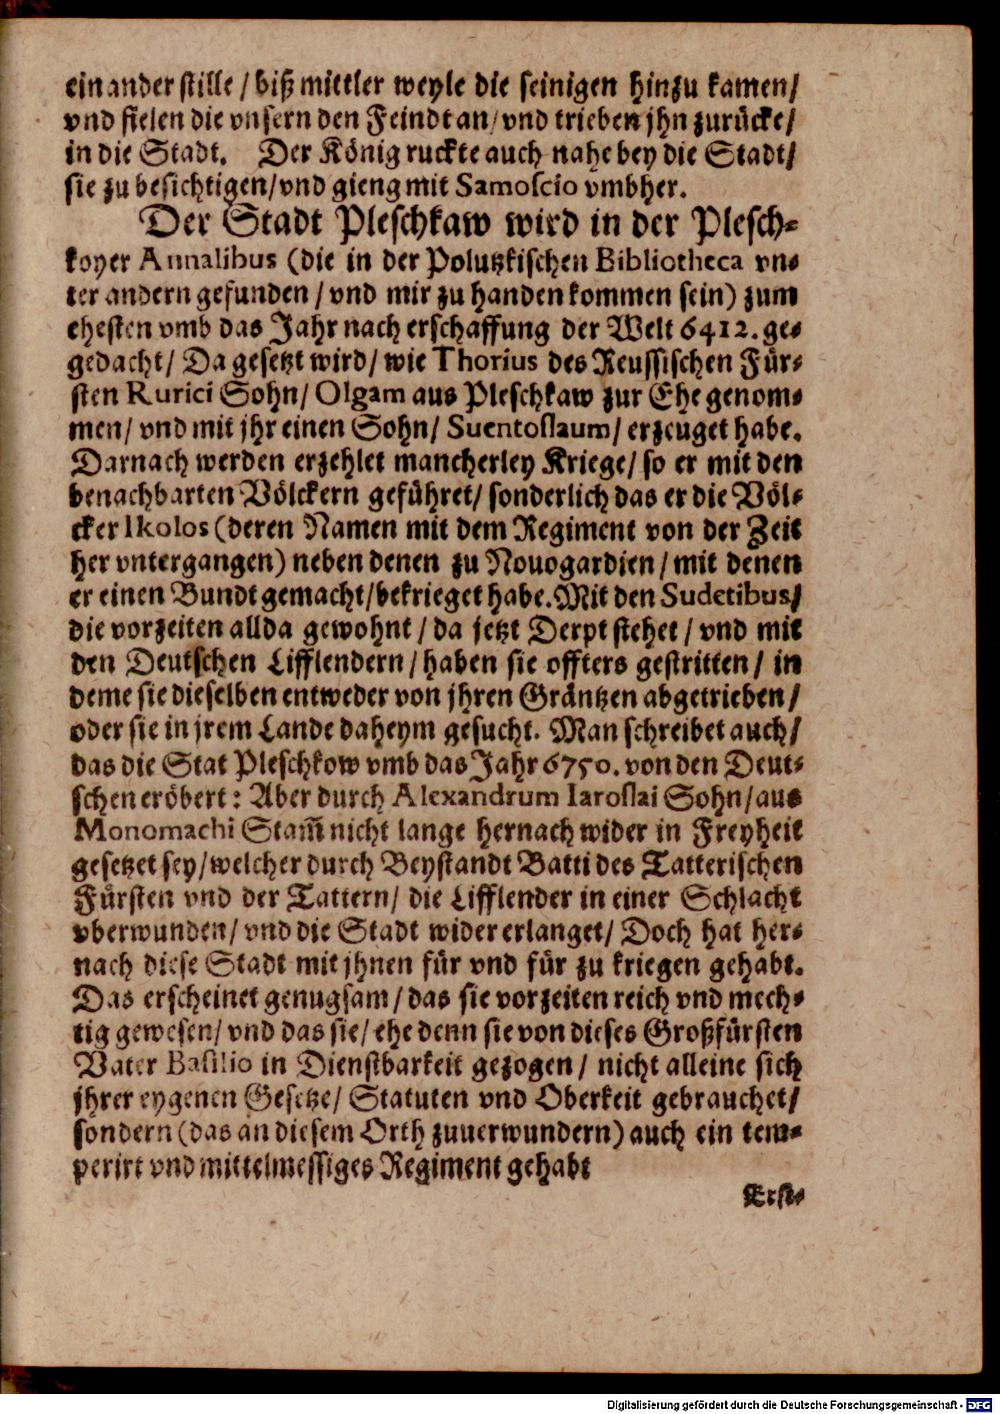 einander stille / biß mittler weyle die seinigen hinzu kamen/
vnd fielen die vnsern den Feindt an/ vnd trieben jhn zurücke/
in die Stadt. Der König ruckte auch nahe bey die Stadt/
sie zu besichtigen/vnd gieng mit Samoscio vmbher.
Der Stadt Pleschkaw wird in der Plesch-
koyer Annalibus (die in der Polutzkischen Bibliotheca vn-
ter andern gefunden / vnd mir zu handen kommen sein) zum
ehesten vmb das Jahr nach erschaffung der Welt 6412. ge-
gedacht/ Da gesetzt wird/ wie Thorius des Reussischen Für-
sten Rurici Sohn/ Olgam aus Pleschkaw zur Ehe genom-
men/ vnd mit jhr einen Sohn/ Suentoslaum/ erzeuget habe.
Darnach werden erzehlet mancherley Kriege/ so er mit den
benachbarten Völckern geführet/ sonderlich das er die Völ-
cker Ikolos (deren Namen mit dem Regiment von der Zeit
her vntergangen) neben denen zu Nouogardien / mit denen
er einen Bundt gemacht/bekrieget habe. Mit den Sudetibus/
die vorzeiten allda gewohnt / da jetzt Derpt stehet / vnd mit
den Deutschen Lifflendern / haben sie offters gestritten / in
deme sie dieselben entweder von jhren Gräntzen abgetrieben/
oder sie in jrem Lande daheym gesucht. Man schreibet auch/
das die Stat Pleschkow vmb das Jahr 6750. von den Deut-
schen eröbert: Aber durch Alexandrum Iaroslai Sohn/aus
Monomachi Stam̃ nicht lange hernach wider in Freyheit
gesetzet sey/welcher durch Beystandt Batti des Tatterischen
Fürsten vnd der Tattern/ die Lifflender in einer Schlacht
vberwunden/ vnd die Stadt wider erlanget/ Doch hat her-
nach diese Stadt mit jhnen für vnd für zu kriegen gehabt.
Das erscheinet genugsam / das sie vorzeiten reich vnd mech-
tig gewesen/ vnd das sie/ ehe denn sie von dieses Großfürsten
Vater Basilio in Dienstbarkeit gezogen / nicht alleine sich
jhrer eygenen Gesetze/ Statuten vnd Oberkeit gebrauchet/
sondern (das an diesem Orth zuuerwundern) auch ein tem-
perirt vnd mittelmessiges Regiment gehabt
Erst-
Digitalisierung gefördert durch die Deutsche Forschungsgemeinschaft - DFG